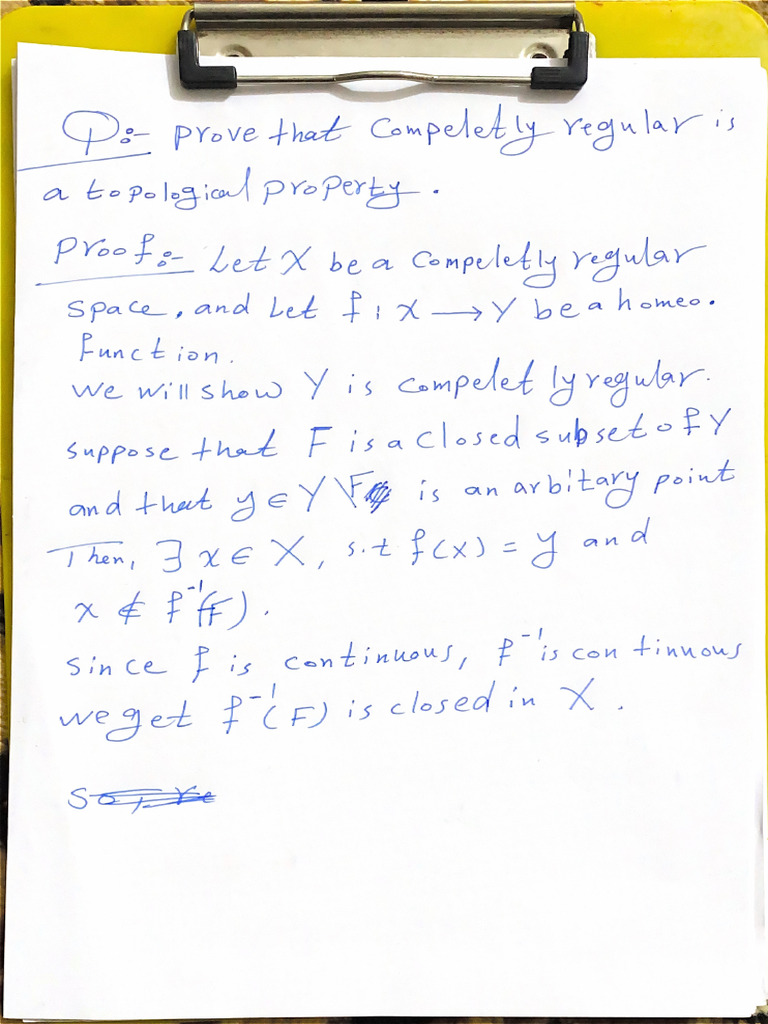 Q:- prove that Compeletly regular is
a topological property.
Proof:- Let X be a Compeletly regular
space, and Let f : X → Y be a homeo.
function.
we will show Y is compeletly regular.
suppose that F is a closed subset of Y
and that y ∈ Y \ F is an arbitary point
Then, ∃ x ∈ X, s.t f(x) = y and
x ∉ f⁻¹(F).
since f is continuous, f⁻¹ is continuous
we get f⁻¹(F) is closed in X.